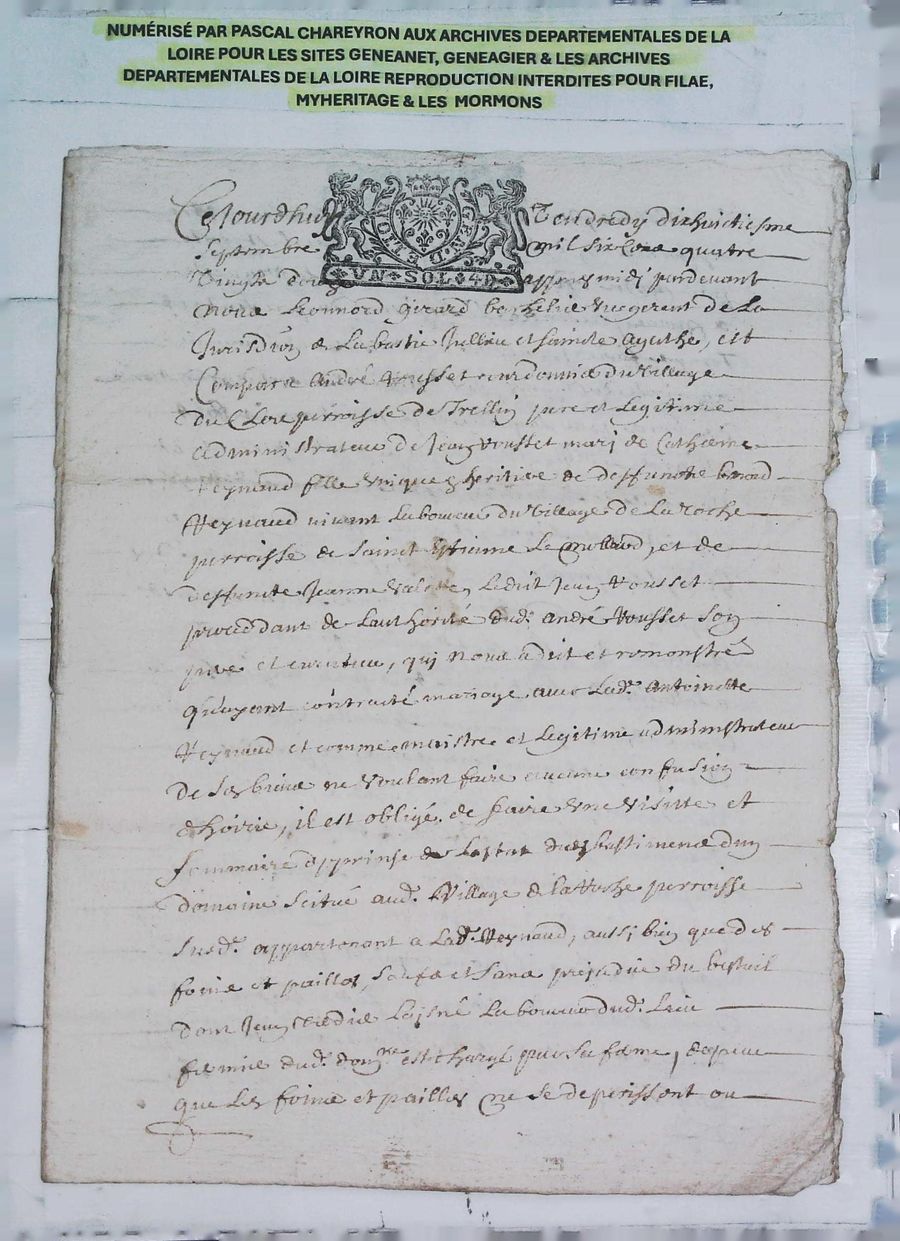 NUMÉRISÉ PAR PASCAL CHAREYRON AUX ARCHIVES DEPARTEMENTALES DE LA
LOIRE POUR LES SITES GENEANET, GENEAGIER & LES ARCHIVES
DEPARTEMENTALES DE LA LOIRE REPRODUCTION INTERDITES POUR FILAE,
MYHERITAGE & LES MORMONS
GEN. D. E LION
VN · SOL · 4D
Cejourdhuy Vendredy dixhuictiesme
Septembre mil six Cens quatre
Vingts douze appres midj pardevant
Nous Leonnard Girard de La
Jurisdion de Labastie Jullieu et sainte agathe, est
Comparu André Rousset du Village
du Clos perroisse de Trellin pere et Legitime
administrateur de Jean Rousset mary de Catherine
Reynaud fille unique & heritiere de deffuncts
Reynaud vivant Laboureur du Village de La roche
parroisse de Sainct Estienne Le mollard, et de
deffuncte Jeanne Valette, Ledit Jean Rousset
proceddant de Lauthorité dud. André Rousset son
pere et curateur, qui Nous a dit et remonstré
Qu'ayant contracté mariage avec Lad. Antoinette
Reynaud et comme maistre et Legitime administrateur
De ses biens ne Voulant faire aucune confusion
d'hoirie, il est obligé de faire Une Visitte et
Sommaire apprinse de Lestat des bastimens dun
domaine Scitué aud. Village de la Roche perroisse
Susd. appartenant a Lad. Reynaud, aussi bien que des
foins et pailles, Saufs et sans prejudice du bestail
Dont Jean Laisné Laboureur dud. Lieu
fermier dud. dom.ne est chargé par sa ferme,
que Les foins et pailles ne se deperissent ou